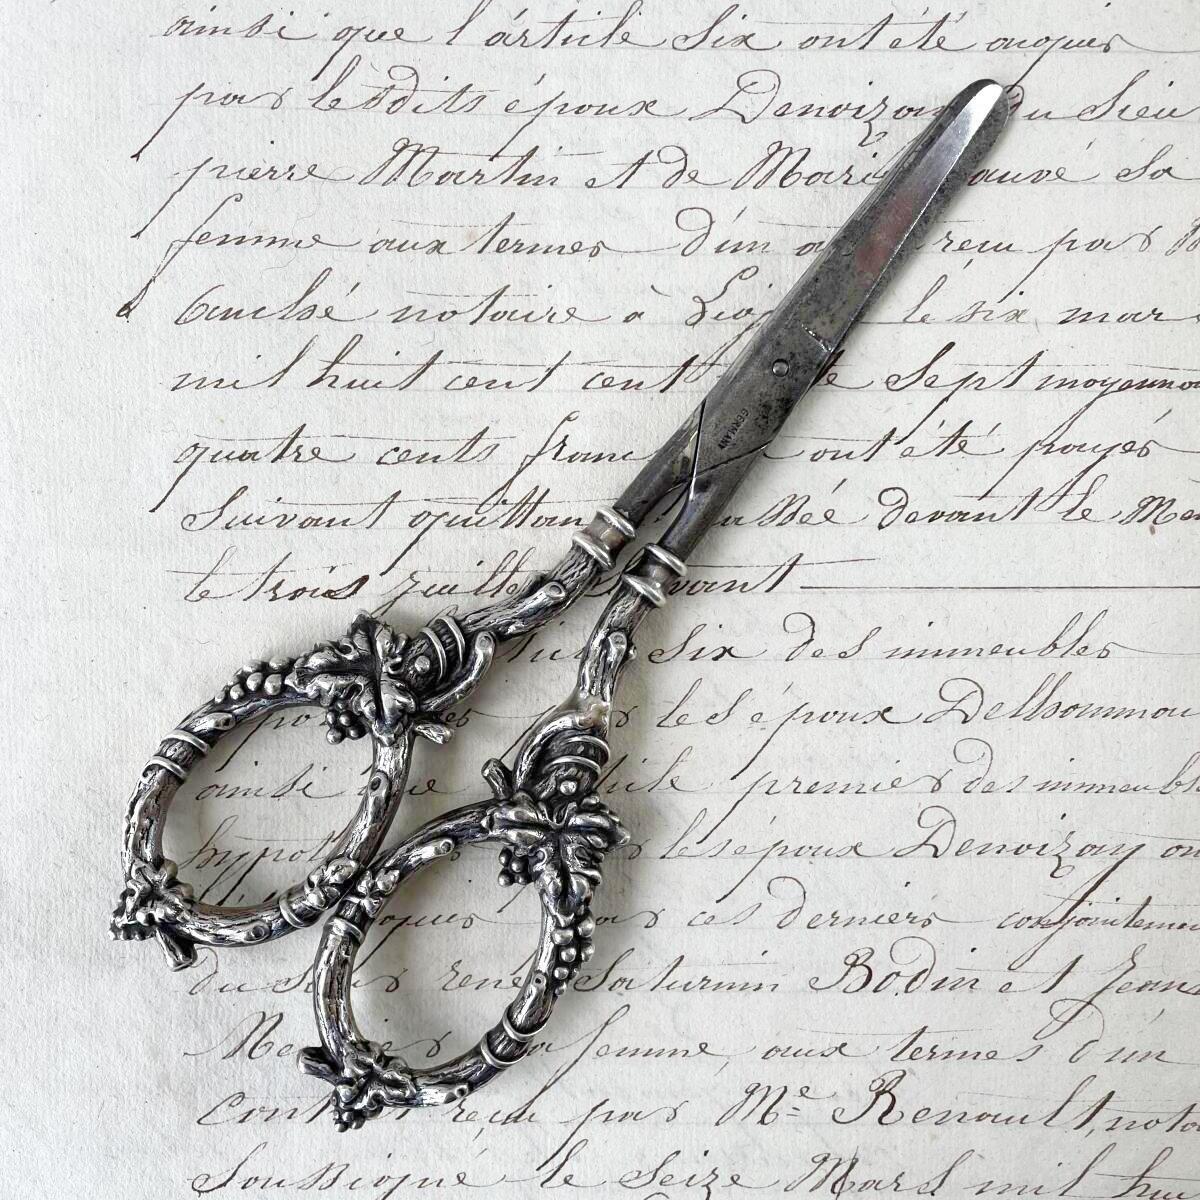 ainsi que l'article six ont été acquis
par lesdits époux Denoizay du Sieu
pierre Martin et de Marie auvé Sa
femme aux termes d'un a reçu par
Bauché notaire à le six mars
mil huit cent cent te Sept moyennan
quatre cents franc ont été payés
Suivant quittan assée devant le Me
le trois juille vant
six des immeubles
lesd époux Delhommou
ainsi que ticle premier des immeubl
hypoth lesd époux Denoizay on
acquis par ces derniers conjointemen
du Sr rené Saturnin Bodin et Jean
Me sa femme, aux termes d'un
Cont reçu par Me Renault, nota
Soussigné le Seize Mars mil hu
GERMANY